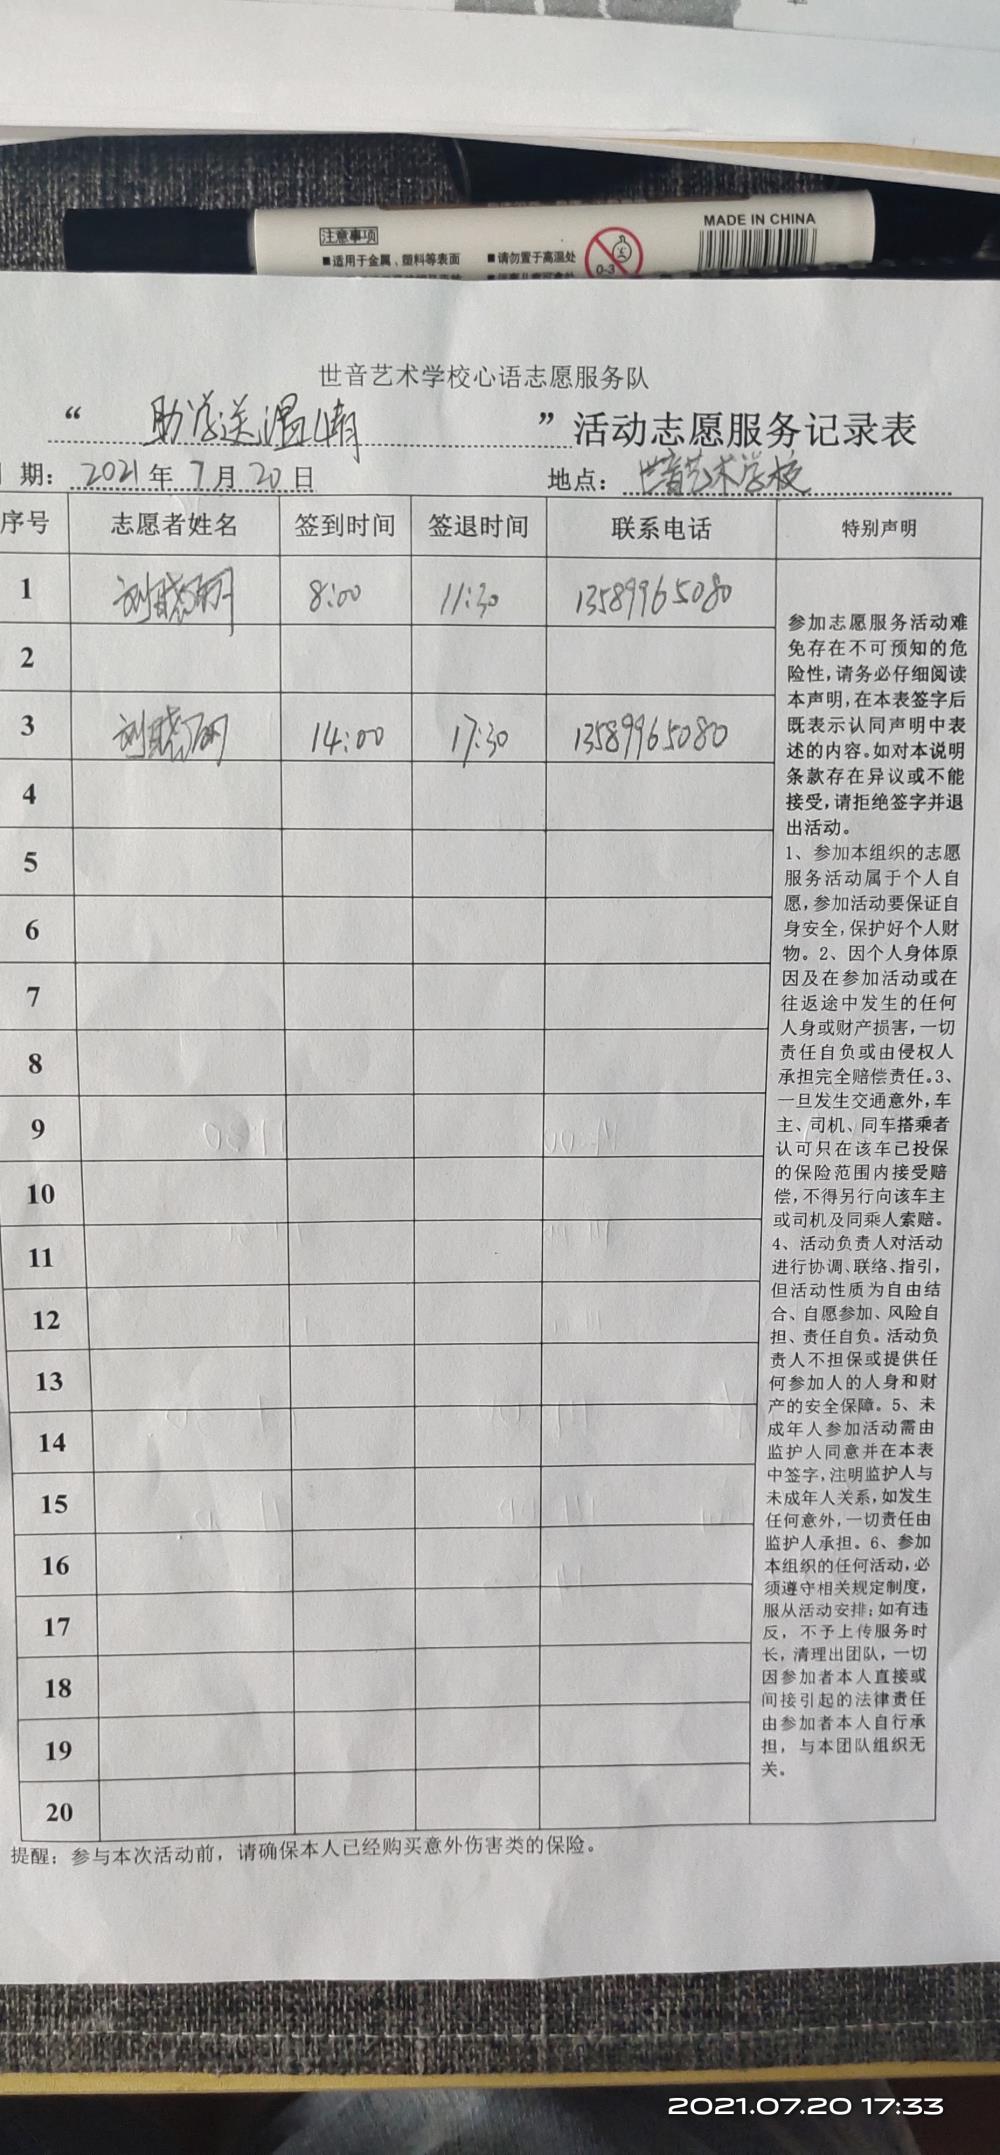 MADE IN CHINA
注意事项
■适用于金属、塑料等表面 ■请勿置于高温处
0-3
世音艺术学校心语志愿服务队
“ 助学送温情 ”活动志愿服务记录表
期: 2021年7月20日 地点: 世音艺术学校
序号 志愿者姓名 签到时间 签退时间 联系电话 特别声明
1 刘晓 8:00 11:30 13589965080
2
3 刘晓 14:00 17:30 13589965080
4
5
6
7
8
9
10
11
12
13
14
15
16
17
18
19
20
参加志愿服务活动难
免存在不可预知的危
险性,请务必仔细阅读
本声明,在本表签字后
既表示认同声明中表
述的内容。如对本说明
条款存在异议或不能
接受,请拒绝签字并退
出活动。
1、参加本组织的志愿
服务活动属于个人自
愿,参加活动要保证自
身安全,保护好个人财
物。2、因个人身体原
因及在参加活动或在
往返途中发生的任何
人身或财产损害,一切
责任自负或由侵权人
承担完全赔偿责任。3、
一旦发生交通意外,车
主、司机、同车搭乘者
认可只在该车已投保
的保险范围内接受赔
偿,不得另行向该车主
或司机及同乘人索赔。
4、活动负责人对活动
进行协调、联络、指引,
但活动性质为自由结
合、自愿参加、风险自
担、责任自负。活动负
责人不担保或提供任
何参加人的人身和财
产的安全保障。5、未
成年人参加活动需由
监护人同意并在本表
中签字,注明监护人与
未成年人关系,如发生
任何意外,一切责任由
监护人承担。6、参加
本组织的任何活动,必
须遵守相关规定制度,
服从活动安排;如有违
反,不予上传服务时
长,清理出团队,一切
因参加者本人直接或
间接引起的法律责任
由参加者本人自行承
担,与本团队组织无
关。
提醒:参与本次活动前,请确保本人已经购买意外伤害类的保险。
2021.07.20 17:33